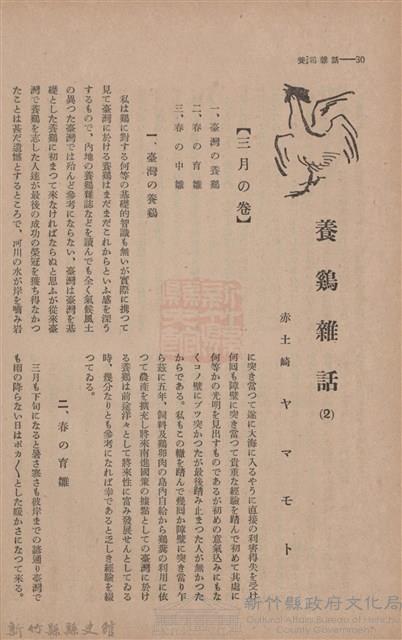 養鷄雜話——30
養鷄雜話 (2)
赤土崎 ヤマモト
【三月の卷】
一、臺灣の養鷄
二、春の育雛
三、春の中雛
一、臺灣の養鷄
私は鷄に對する何等の基礎的智識も無いが實際に携つて
見て臺灣に於ける養鷄はまだまだこれからといふ感を深う
するもので、內地の養鷄雜誌などを讀んでも全く氣候風土
の異つた臺灣では殆んど參考にならない、臺灣は臺灣を基
礎とした養鷄に初まつて來なければならぬと思ふが從來臺
灣で養鷄を志した人達が最後の成功の榮冠を獲ち得なかつ
たことは甚だ遺憾とするところで、河川の水が岸を嚙み岩
に突き當つて遂に大海に入るやうに直接の利害得失を受け
何囘も障壁に突き當つて貴重な經驗を踏んで初めて其處に
何等かの光明を見出すものであるが初めの意氣込みにもな
くコノ壁にブツ突かつたが最後踏み止まつた人が無かつた
からである。私もこの轍を踏んで幾囘か障壁に突き當り乍
ら茲に五年、飼料及鷄卵肉の島內自給から鷄糞の利用に依
つて農產を擴充し將來南進國策の據點としての臺灣に於け
る養鷄は前途洋々として將來性に富み發展せんとしてゐる
時、幾分なりとも參考になれば幸であると乏しき經驗を綴
つてゐる。
二、春の育雛
三月も下旬になると暑さ寒さも彼岸までの諺通り臺灣で
も雨の降らない日はポカ〱とした暖かさになつて來る。
新竹縣縣史館
新竹縣政府文化局
Cultural Affairs Bureau of Hsinchu
County Government